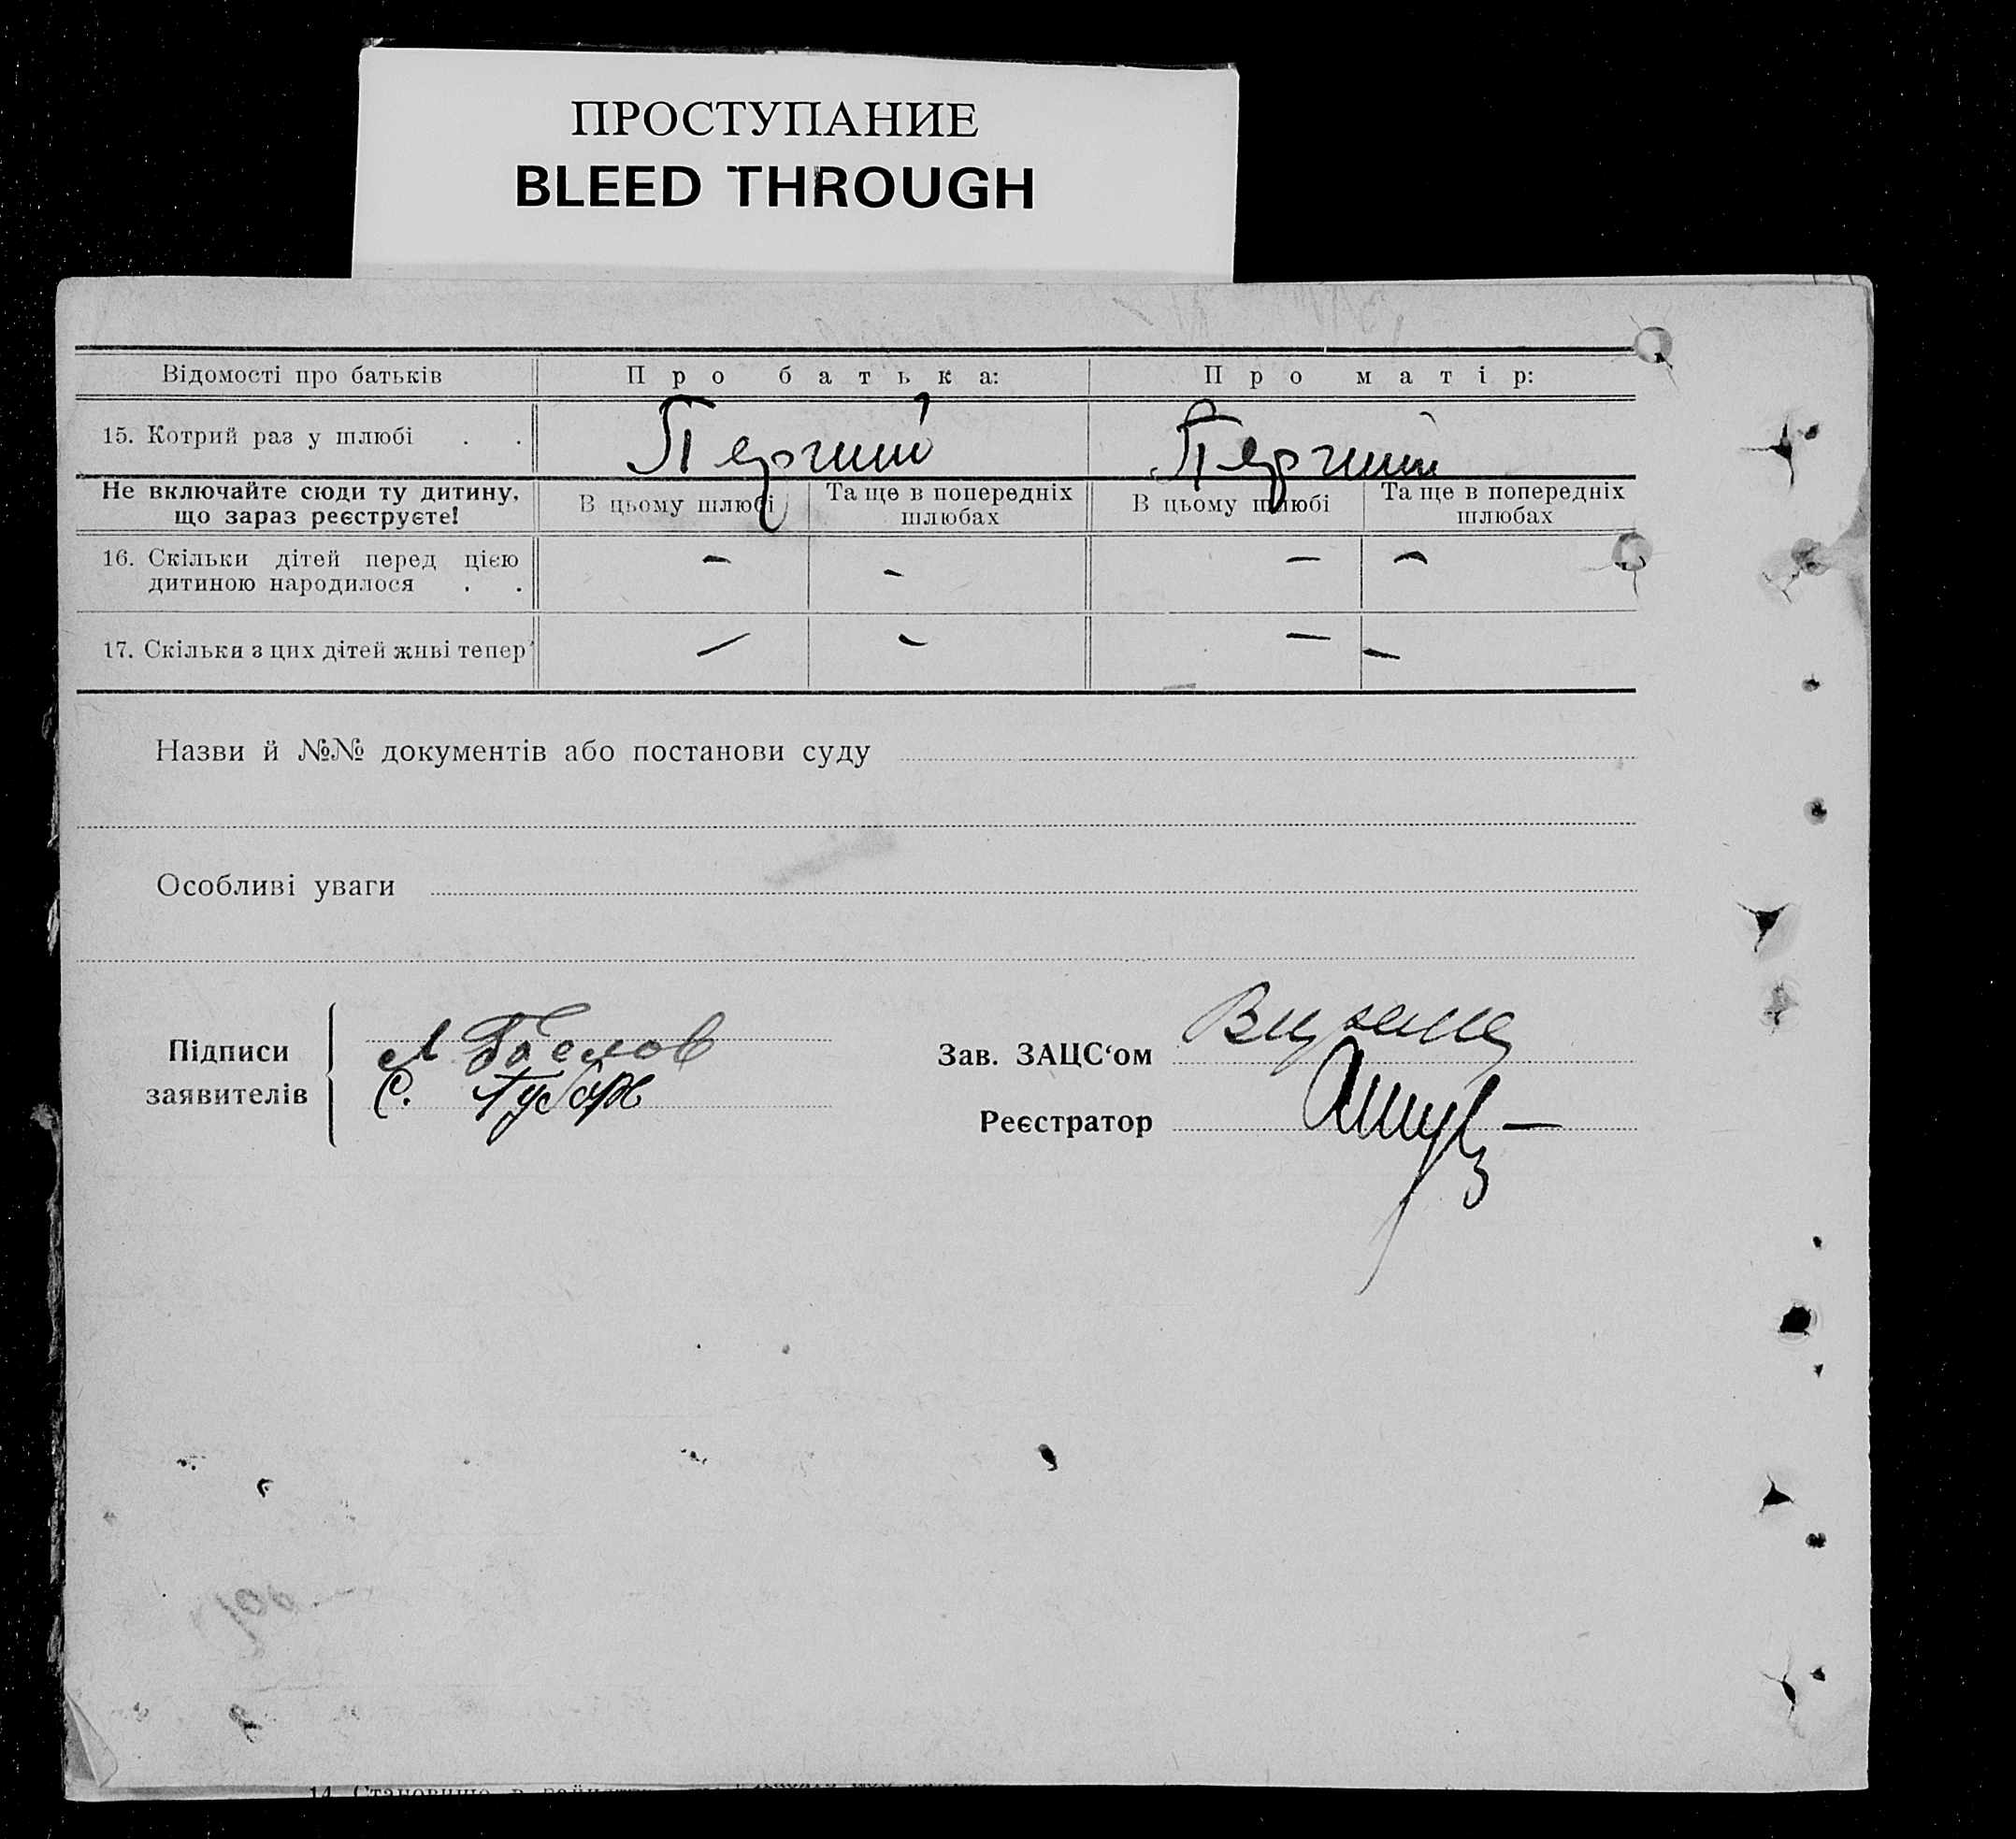 ПРОСТУПАНИЕ
BLEED THROUGH
Відомості про батьків Про батька: Про матір:
15. Котрий раз у шлюбі . . Перший Перший
Не включайте сюди ту дитину, що зараз реєструєте! В цьому шлюбі Та ще в попередніх шлюбах В цьому шлюбі Та ще в попередніх шлюбах
16. Скільки дітей перед цією — — — —
дитиною народилося . .
17. Скільки з цих дітей живі тепер — — — —
Назви й №№ документів або постанови суду
Особливі уваги
Підписи
заявителів
С.
Зав. ЗАЦС‘ом
Реєстратор
14. Становище в